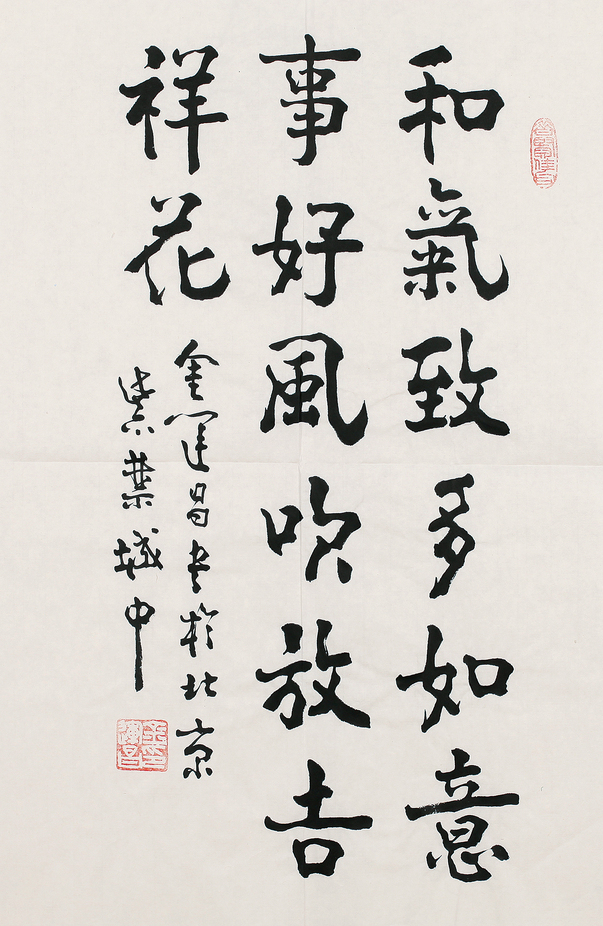 和氣致多如意
事好風吹放吉
祥花
金運昌書於北京
紫葉城中